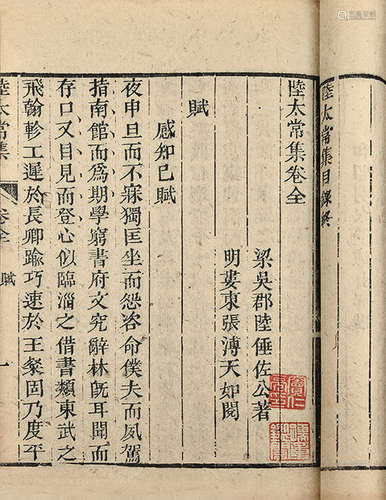 陸太常集目錄終
陸太常集卷全
梁吳郡陸倕佐公著
明婁東張溥天如閱
賦
感知己賦
夜申旦而不寐獨匡坐而怨咨命僕夫而夙駕
指南館而為期學窮書府文究辭林旣耳聞而
存口又目見而登心似臨淄之借書類東武之
飛翰軫工遲於長卿踰巧速於王粲固乃度平
陸太常集
卷全
賦
一